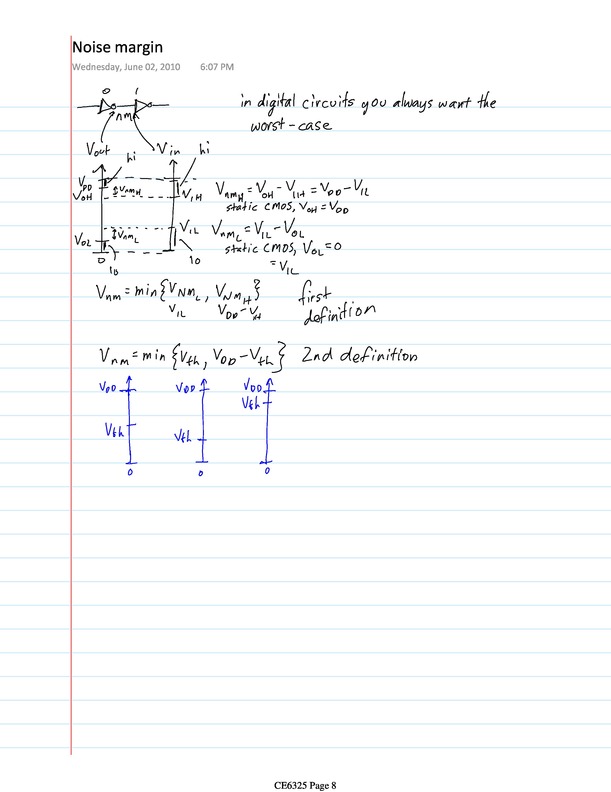 Noise margin
Wednesday, June 02, 2010 6:07 PM
0 1
nm
in digital circuits you always want the
worst-case
Vout Vin hi
hi
VDD
VOH VnmH VIH
VnmH = VOH - VIH = VDD - VIL
static CMOS, VOH = VDD
VOL VnmL VIL
VnmL = VIL - VOL
static CMOS, VOL = 0
= VIL
0 lo lo
Vnm = min{VNML, VNMH} first
VIL VDD - VIH definition
Vnm = min{Vth, VDD - Vth} 2nd definition
VDD VDD VDD
Vth Vth Vth
0 0 0
CE6325 Page 8